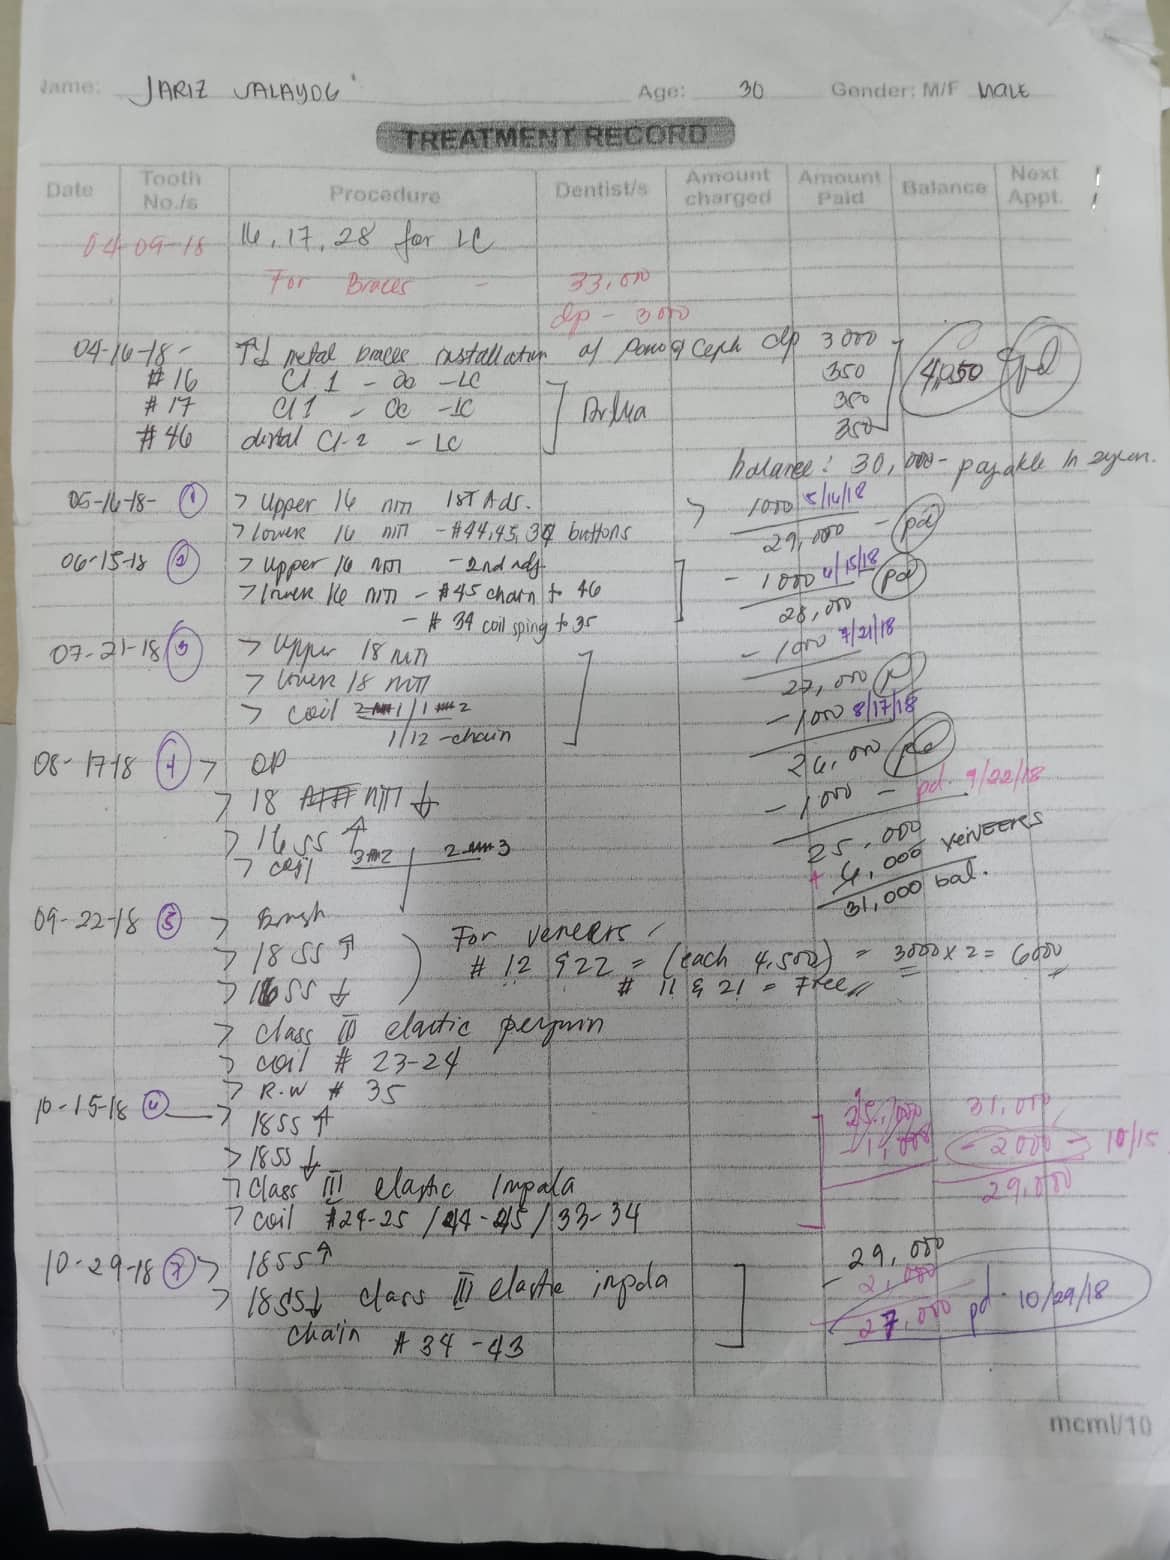 Name: JARIZ JALAYOG Age: 30 Gender: M/F MALE
TREATMENT RECORD
Date Tooth No./s Procedure Dentist/s Amount charged Amount Paid Balance Next Appt.
04-09-18 16, 17, 28 for LC
For Braces - 33,000
dp - 3000
04-16-18- ↑↓ metal braces installation w/ Pano & Ceph dp 3000
#16 Cl 1 - Oc - LC 350 4,050 pd
#17 Cl 1 - Oc - LC 350
#46 distal Cl-2 - LC 350
balance: 30,000- payable in
05-16-18- ① > Upper 16 niti 1st Adj. > 1000 5/16/18
> lower 16 niti - #44,45,34 buttons 29,000 - pd
06-15-18 ② > Upper 16 niti - 2nd adj. - 1000 6/15/18 pd
> lower 16 niti - #45 chain to 46 28,000
- #34 coil sping to 35
07-21-18 ③ > Upper 18 niti - 1000 7/21/18
> lower 18 niti 27,000
> coil 2 1/1 2 - 1000 8/17/18
1/12 - chain
08-17-18 ④ > OP 26,000 pd
> 18 niti ↓ - 1000 - pd. 9/22/18
> 16 SS ↑ 25,000
> coil 3 2 2 3 + 6,000 VENEERS
31,000 bal.
09-22-18 ⑤ >
> 18 SS ↑ For veneers
> 16 SS ↓ # 12 & 22 = (each 4,500) = 3000 x 2 = 6000
# 11 & 21 = Free
> class III elastic penguin
> coil # 23-24
> R.W # 35
10-15-18 ⑥ > 18SS ↑ 25,000 31,000
> 18SS ↓ - 1,000 - 2000 - 10/15
> class III elastic Impala 29,000
> coil #24-25 / 44-45 / 33-34
10-29-18 ⑦ > 18SS ↑ 29,000
> 18SS ↓ class III elastic impala - 2,000
chain # 34 - 43 27,000 pd. 10/29/18
mcml/10